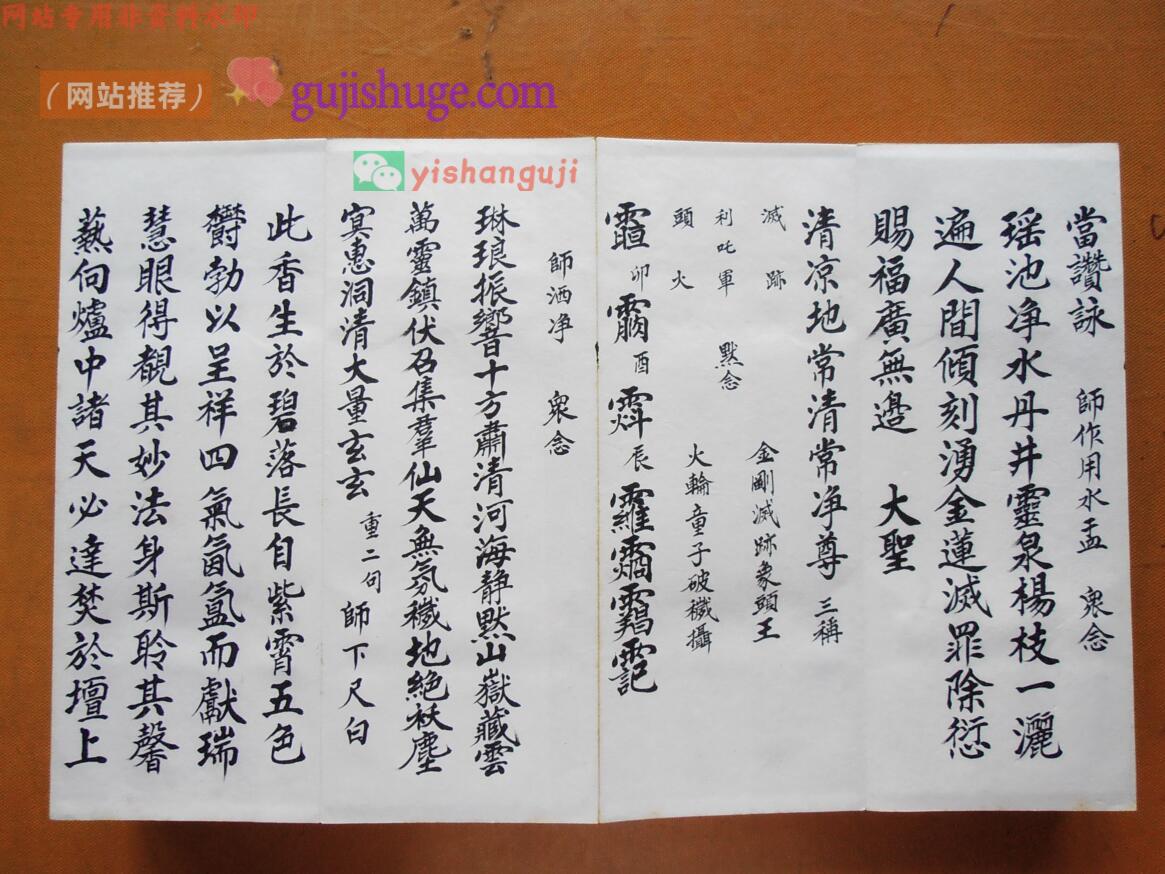 网站专用非资料水印
（网站推荐）
gujishuge.com
yishanguji
當讚詠 師作用水盂 衆念
瑶池净水丹井靈泉楊枝一灑
遍人間傾刻湧金蓮滅罪除愆
賜福廣無邊 大聖
清凉地常清常净尊 三稱
滅跡 金剛滅跡象頭王
利吒軍 默念
頭火 火輪童子破穢攝
卯 酉 辰
師洒净 衆念
琳琅振響十方肅清河海静默山嶽藏雲
萬靈鎮伏召集羣仙天無氛穢地絶袄塵
㝠惠洞清大量玄玄 重二句 師下尺白
此香生於碧落長自紫霄五色
欝勃以呈祥四氣氤氲而獻瑞
慧眼得觀其妙法身斯聆其馨
爇向爐中諸天必達焚於壇上